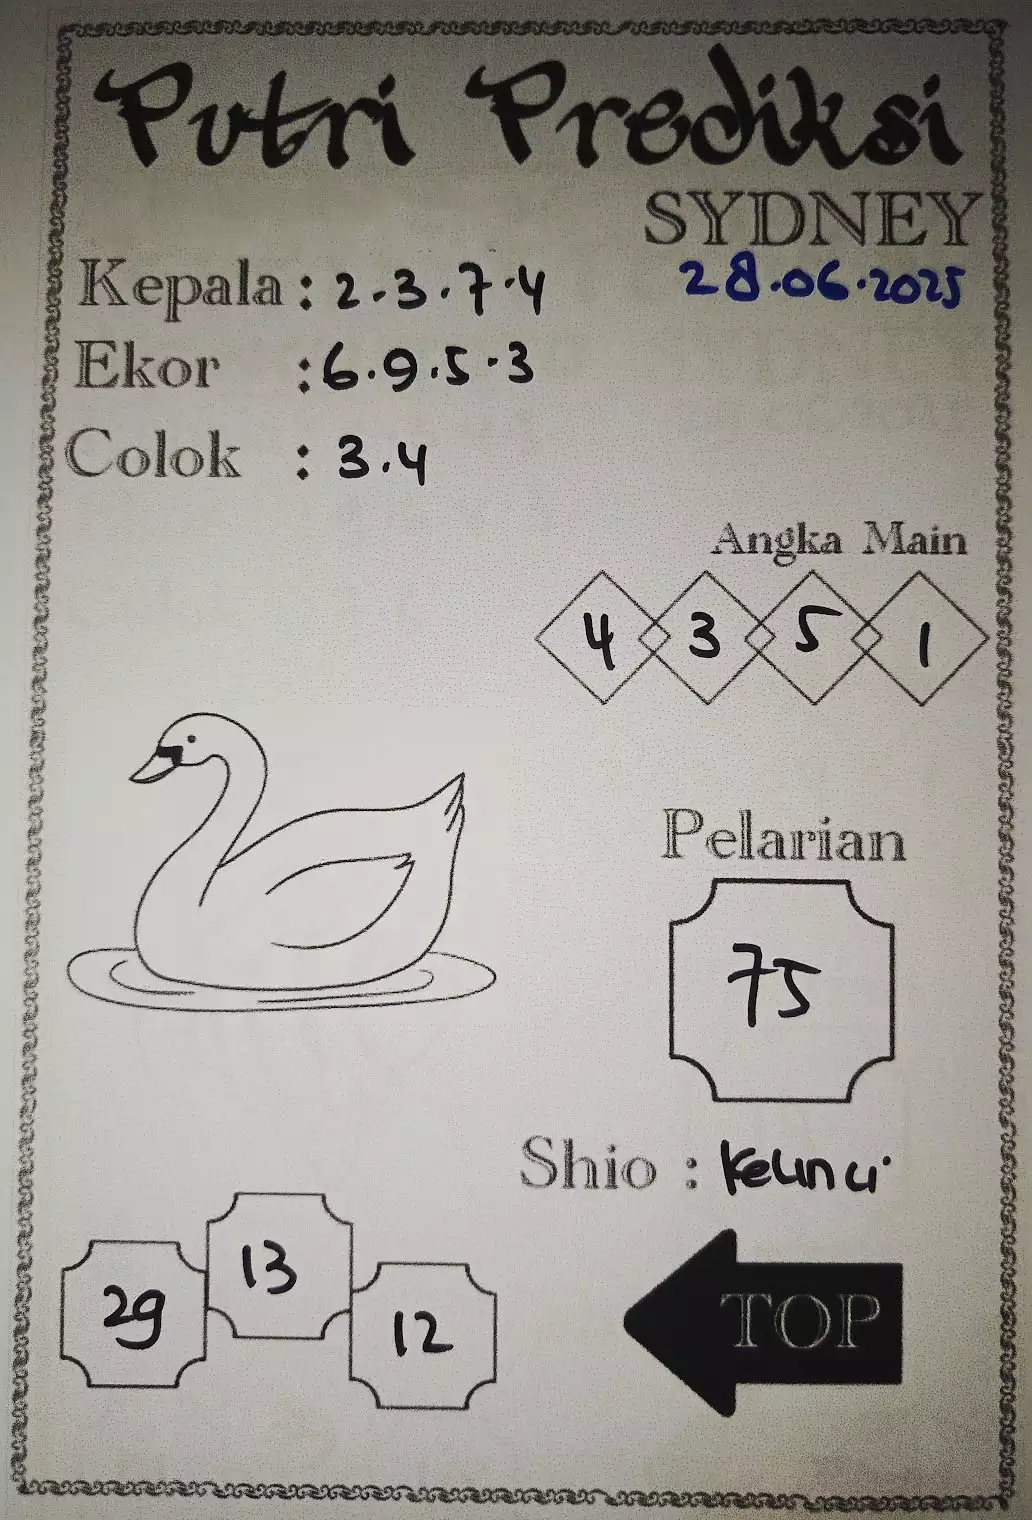 Putri Prediksi
SYDNEY
28.06.2025
Kepala : 2.3.7.4
Ekor : 6.9.5.3
Colok : 3.4
Angka Main
4 3 5 1
Pelarian
75
Shio : Kelinci
29 13 12
TOP